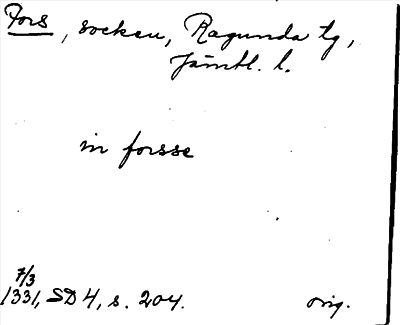 Fors, socken, Ragunda tg,
Jämtl. l.
in forsse
7/3
1331, SD 4, s. 204. orig.